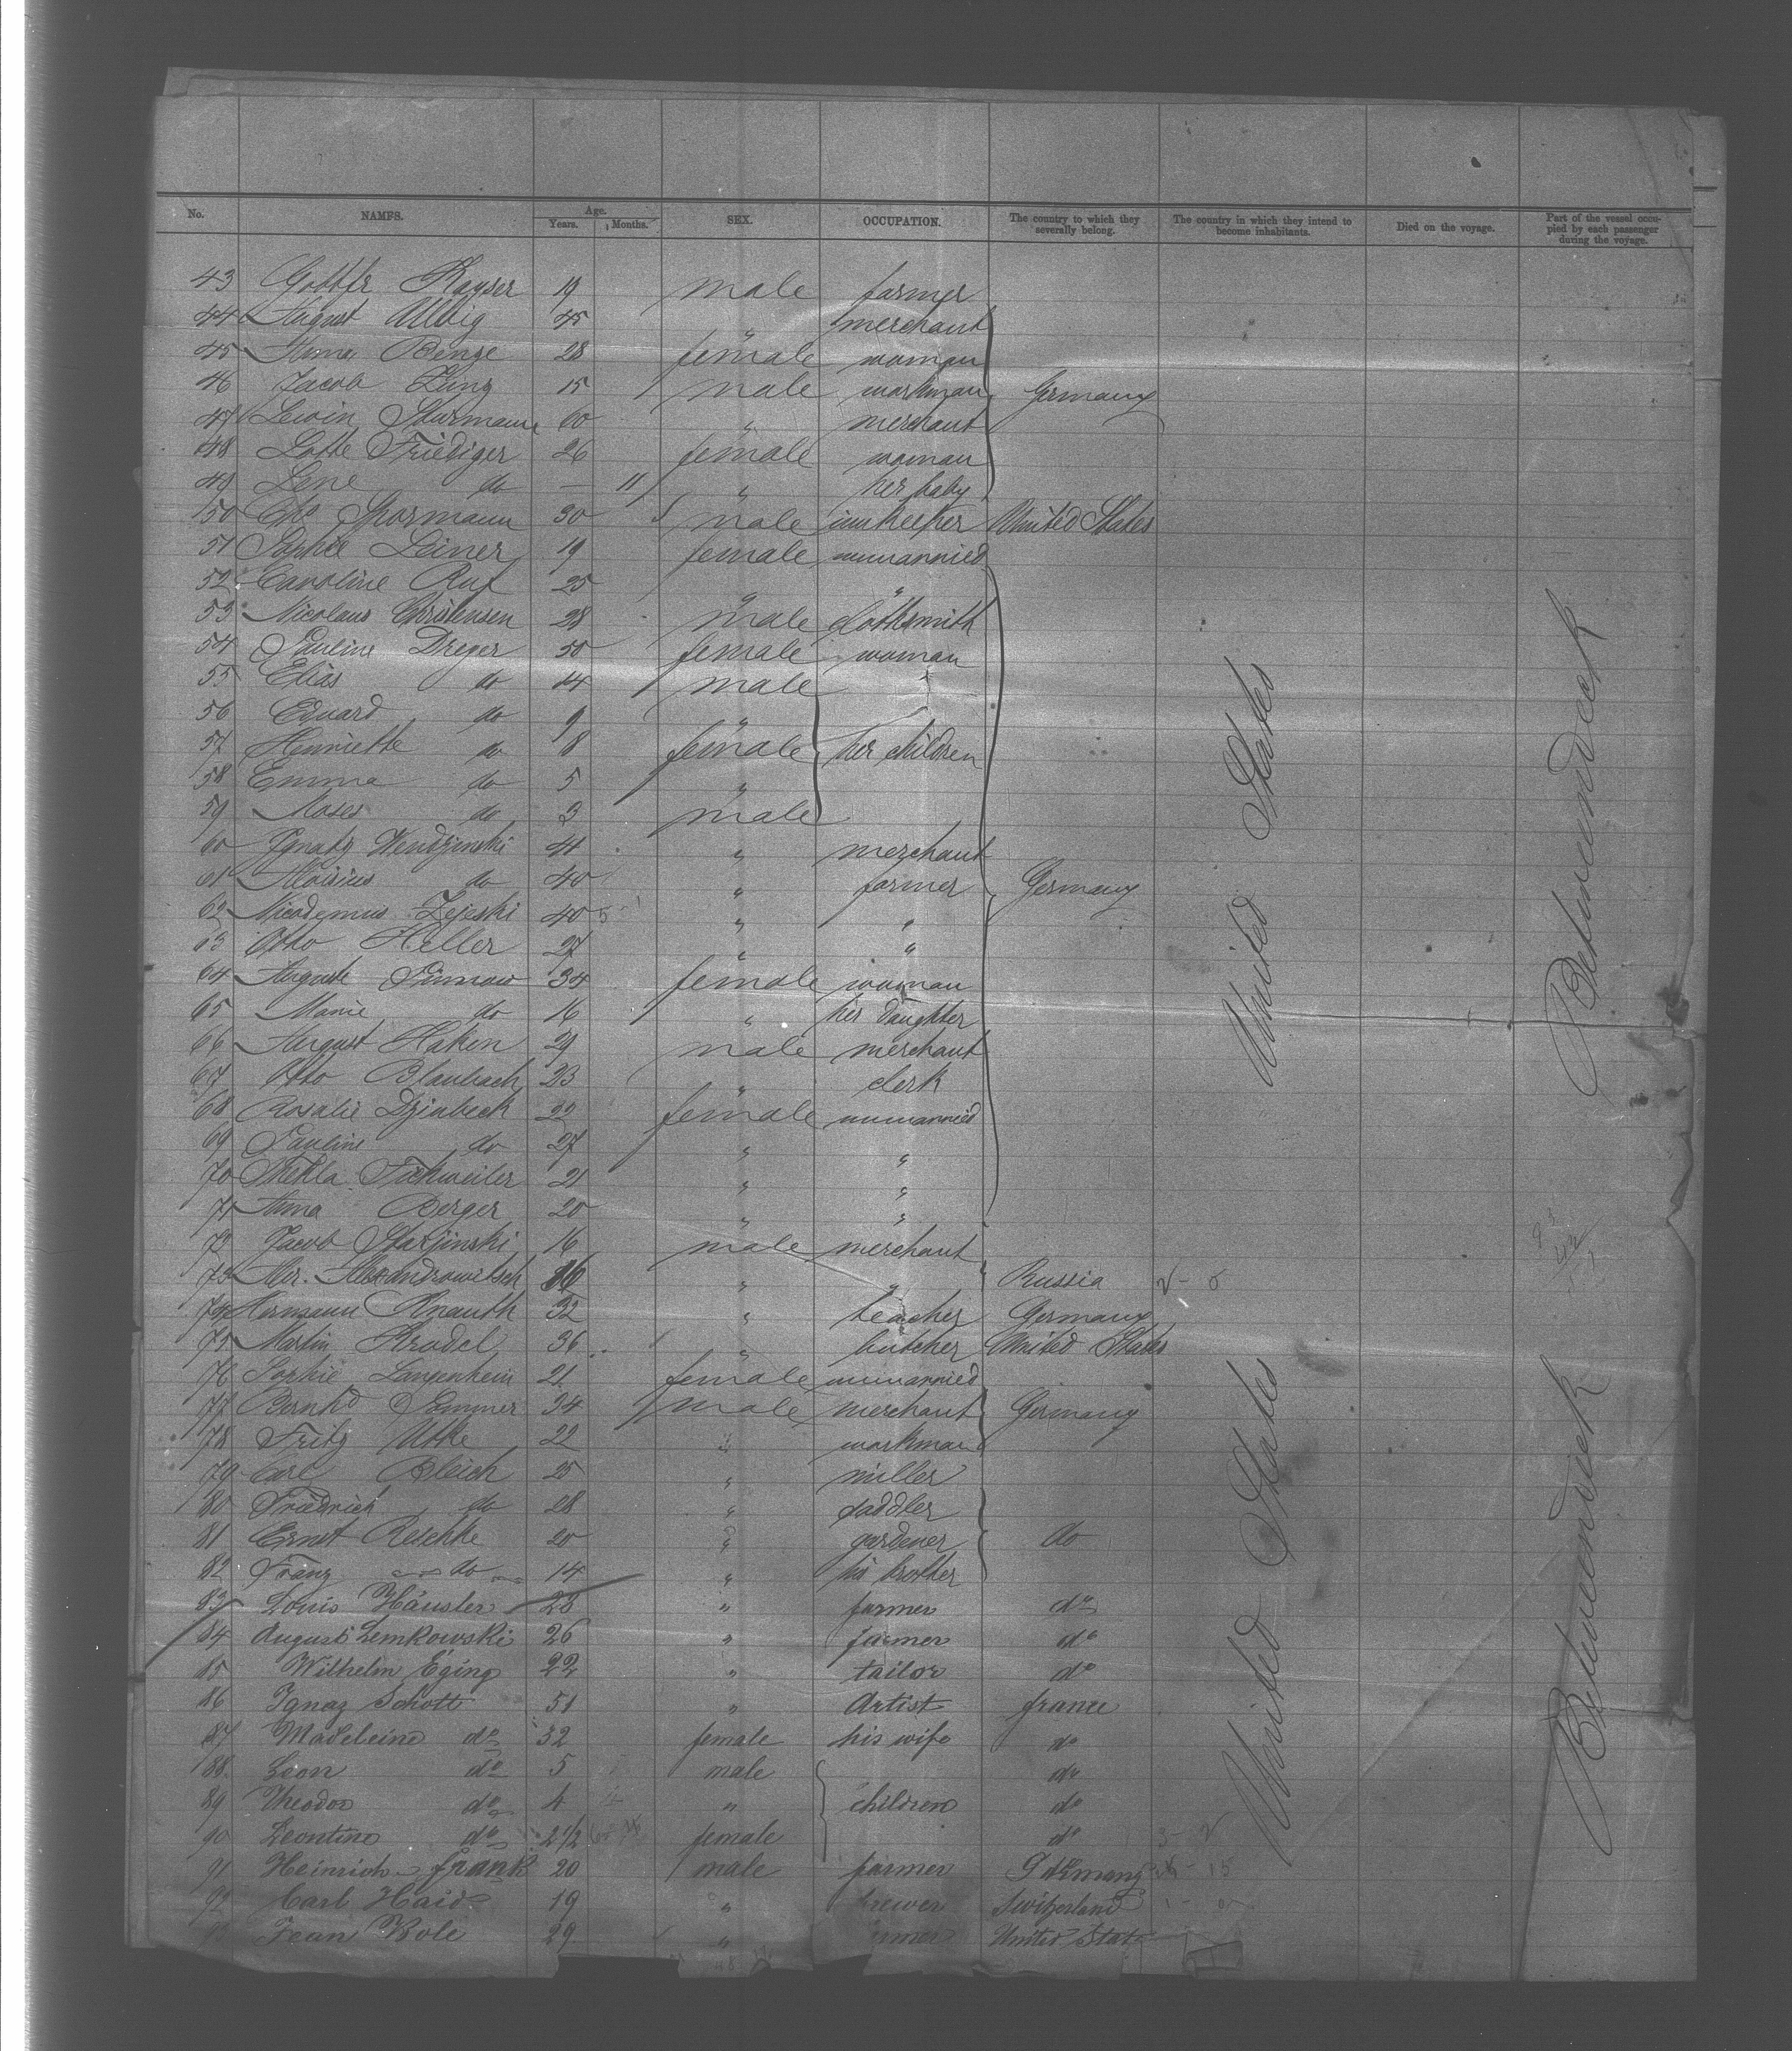 No. NAMES. Age. Years. Months. SEX. OCCUPATION. The country to which they severally belong. The country in which they intend to become inhabitants. Died on the voyage. Part of the vessel occupied by each passenger during the voyage.
43 Gottfr Kayser 19 male farmer
44 August Ulbig 45 " merchant
45 Anna Benge 28 female woman
46 Jacob Lung 15 male workman Germany
47 Lewin Sturmann 60 " merchant
48 Lotte Friediger 26 female woman
49 Lene do — 11 " her baby
50 Spormann 30 male innkeeper United States
51 Sophie Leiner 19 female unmarried
52 Caroline Ruf 25 " "
53 Nicolaus Christensen 28 male clothsmith
54 Pauline Dreger 50 female woman
55 Elias do 14 male
56 Eduard do 9 "
57 Henriette do 8 female her children
58 Emma do 5 "
59 Moses do 3 male
60 Ignatz Wendzinski 41 " merchant
61 Aloisius do 40 " farmer Germany
62 Nicodemus Zejeski 40 " "
63 Otto Heller 27 " "
64 Auguste Pinnow 34 female woman
65 Marie do 16 " her daughter
66 August Haken 29 male merchant
67 Otto Blaubach 23 " clerk
68 Rosalie Dzinbeck 22 female unmarried
69 Pauline do 27 " "
70 Thekla Fichweiler 21 " "
71 Anna Berger 20 " "
72 Jacob Starjinski 16 male merchant
73 Alexandrowitsch 16 " " Russia
74 Hermann Knauth 32 " teacher Germany
75 Martin Krodel 36 " butcher United States
76 Sophie Langenheim 21 female unmarried
77 Bernhd Emmer 34 male merchant Germany
78 Fritz Utke 22 " workman
79 Carl Bleich 25 " miller
80 Friedrich do 28 " saddler
81 Ernst Reschke 20 " gardener do
82 Franz do 14 " his brother
83 Louis Häusler 28 " farmer do
84 August Lemkowski 26 " farmer do
85 Wilhelm Eging 22 " tailor do
86 Ignaz Schott 51 " Artist france
87 Madeleine do 32 female his wife do
88 Leon do 5 male do
89 Theodor do 4 " children do
90 Leontine do 2 1/2 female do
91 Heinrich Frank 20 male farmer Germany
92 Carl Haid 19 " brewer Switzerland
93 Jean Bole 29 " United States
United States
United States
Betweendeck
Betweendeck